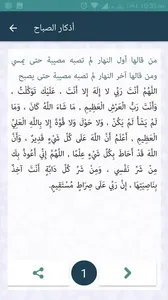 10:20
أذكار الصباح
من قالها أول النهار لم تصبه مصيبة حتى يمسي
ومن قالها آخر النهار لم تصبه مصيبة حتى يصبح
اللَّهُمَّ أَنْتَ رَبِّي لا إِلَهَ إِلا أَنْتَ ، عَلَيْكَ تَوَكَّلْتُ ،
وَأَنْتَ رَبُّ الْعَرْشِ الْعَظِيمِ ، مَا شَاءَ اللَّهُ كَانَ ، وَمَا
لَمْ يَشَأْ لَمْ يَكُنْ ، وَلا حَوْلَ وَلا قُوَّةَ إِلا بِاللَّهِ الْعَلِيِّ
الْعَظِيمِ ، أَعْلَمُ أَنَّ اللَّهَ عَلَى كُلِّ شَيْءٍ قَدِيرٌ ، وَأَنَّ
اللَّهَ قَدْ أَحَاطَ بِكُلِّ شَيْءٍ عِلْمًا ، اللَّهُمَّ إِنِّي أَعُوذُ بِكَ
مِنْ شَرِّ نَفْسِي ، وَمِنْ شَرِّ كُلِّ دَابَّةٍ أَنْتَ آخِذٌ
بِنَاصِيَتِهَا ، إِنَّ رَبِّي عَلَى صِرَاطٍ مُسْتَقِيمٍ.
1